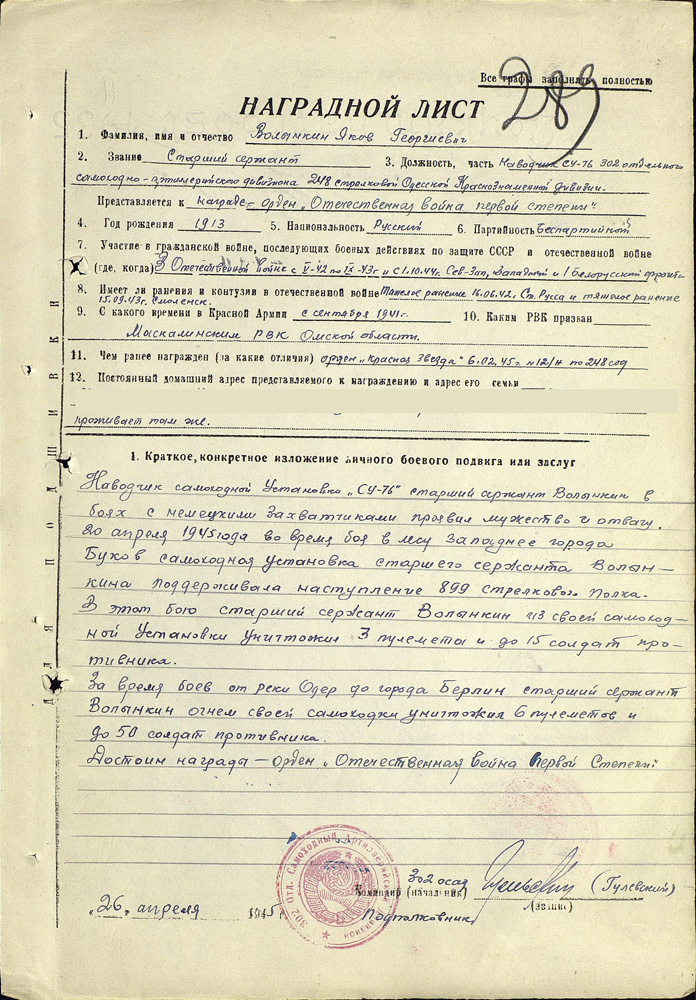 Все графы заполнять полностью
289
НАГРАДНОЙ ЛИСТ
1. Фамилия, имя и отчество Волынкин Яков Георгиевич
2. Звание Старший сержант 3. Должность, часть Наводчик СУ-76 302 отдельного
самоходно-артиллерийского дивизиона 248 стрелковой Одесской Краснознаменной дивизии.
Представляется к награде - орден „Отечественная война первой степени"
4. Год рождения 1913 5. Национальность Русский 6. Партийность Беспартийный
7. Участие в гражданской войне, последующих боевых действиях по защите СССР и отечественной войне
(где, когда) В Отечественной войне с V-42 по IX-43г и с 1.10.44г. Сев-Зап, Западный и 1 Белорусский фронт
8. Имеет ли ранения и контузии в отечественной войне Тяжелое ранение 16.06.42г. Ст. Русса и тяжелое ранение
15.09.43г. Смоленск.
9. С какого времени в Красной Армии с сентября 1941г. 10. Каким РВК призван
Москаленским РВК Омской области.
11. Чем ранее награжден (за какие отличия) орден „Красная Звезда" 6.02.45г. №12/н по 248 сод
12. Постоянный домашний адрес представляемого к награждению и адрес его семьи
проживает там же.
ДЛЯ ПОДШИВКИ
1. Краткое, конкретное изложение личного боевого подвига или заслуг
Наводчик самоходной Установки „СУ-76" старший сержант Волынкин в
боях с немецкими захватчиками проявил мужество и отвагу.
20 апреля 1945 года во время боя в лесу западнее города
Буков самоходная установка старшего сержанта Волын-
кина поддерживала наступление 899 стрелкового полка.
В этот бою старший сержант Волынкин из своей самоход-
ной Установки уничтожил 3 пулемета и до 15 солдат про-
тивника.
За время боев от реки Одер до города Берлин старший сержант
Волынкин огнем своей самоходки уничтожил 6 пулеметов и
до 50 солдат противника.
Достоин награды - орден „Отечественная война Первой Степени"
302 Отд. Самоходный Артиллерийский Дивизион
302 осад
Командир (начальник) (Гулевский)
Подполковник (звание)
„26" апреля 1945 г.